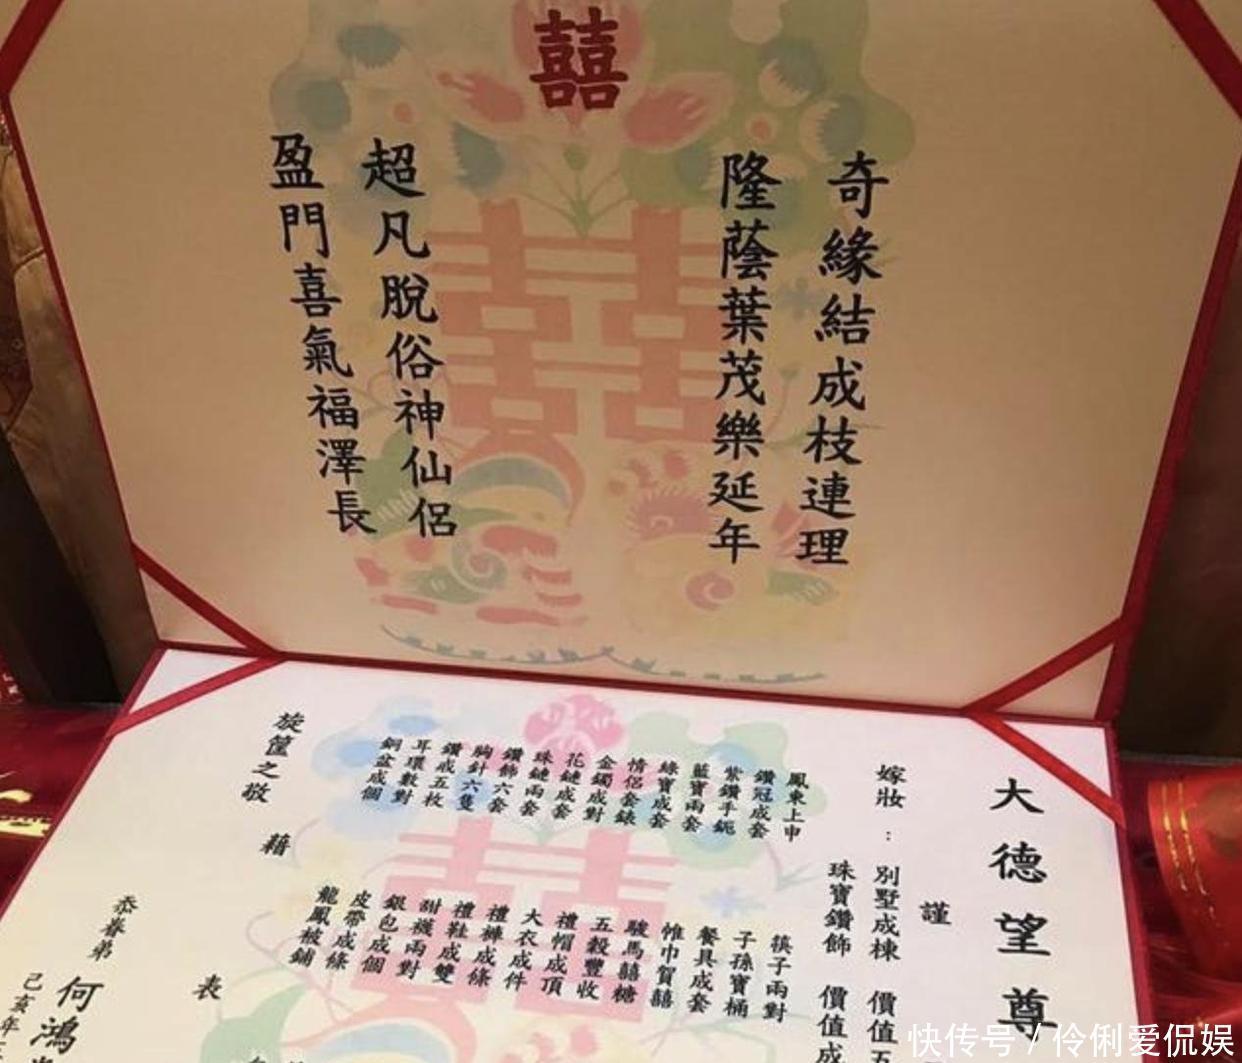 囍
奇緣結成枝連理
隆蔭葉茂樂延年
超凡脫俗神仙侶
盈門喜氣福澤長
大德望尊
謹
嫁妝：別墅成棟 價值五
珠寶鑽飾 價值成
鳳東上申
鑽冠成套
紫鑽手鈪
藍寶兩套
綠寶成套
情侶套錶
金鐲成對
花鏈成套
珠鏈兩套
鑽飾六套
胸針六隻
鑽戒五枚
耳環數對
銅盆成個
筷子兩對
子孫寶桶
餐具成套
帷巾賀囍
駿馬囍糖
五穀豐收
禮帽成頂
大衣成件
禮褲成條
禮鞋成雙
甜襪兩對
銀包成個
皮帶成條
龍鳳被鋪
旋筐之敬 藉
表
忝眷弟
何鴻
己亥年
快传号 / 伶俐爱侃娱